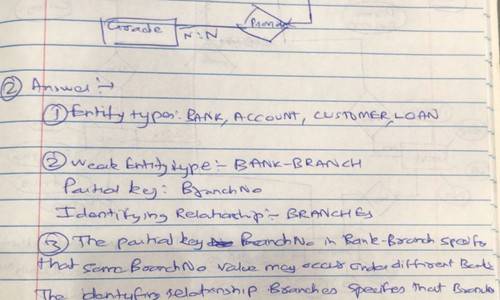 Grade N:N
② Answer :-
① Entity types:- BANK, ACCOUNT, CUSTOMER, LOAN
② Weak Entity type :- BANK-BRANCH
Partial key : BranchNo
Identifying Relationship :- BRANCHES
③ The partial key BranchNo in Bank-Branch specifies
that same BranchNo value may occur under different Bank
The identifying relationship Branches specifies that Branch